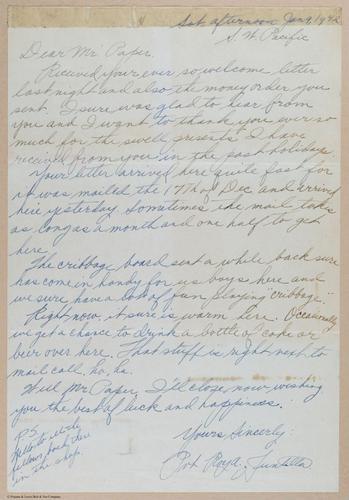 Sat afternoon Jan 9, 1942
S. W. Pacific
Dear Mr Paper,
Received your ever so welcome letter
last night and also the money order you
sent. I sure was glad to hear from
you and I want to thank you ever so
much for the swell presents I have
received from you in the past holidays.
Your letter arrived here quite fast for
it was mailed the 17th of Dec and arrived
here yesterday. Sometimes the mail takes
as long as a month and one half to get
here.
The cribbage board sent a while back sure
has come in handy for us boys here and
we sure have a lot of fun playing "cribbage."
Right now it sure is warm here. Occasionally
we get a chance to drink a bottle of coke or
beer over here. That stuff is right next to
mail call, ha, ha.
Well Mr Paper, I'll close now wishing
you the best of luck and happiness.
Yours Sincerely:
Pvt Roy A.
P.S.
Hello to
fellows back there
in the shop.